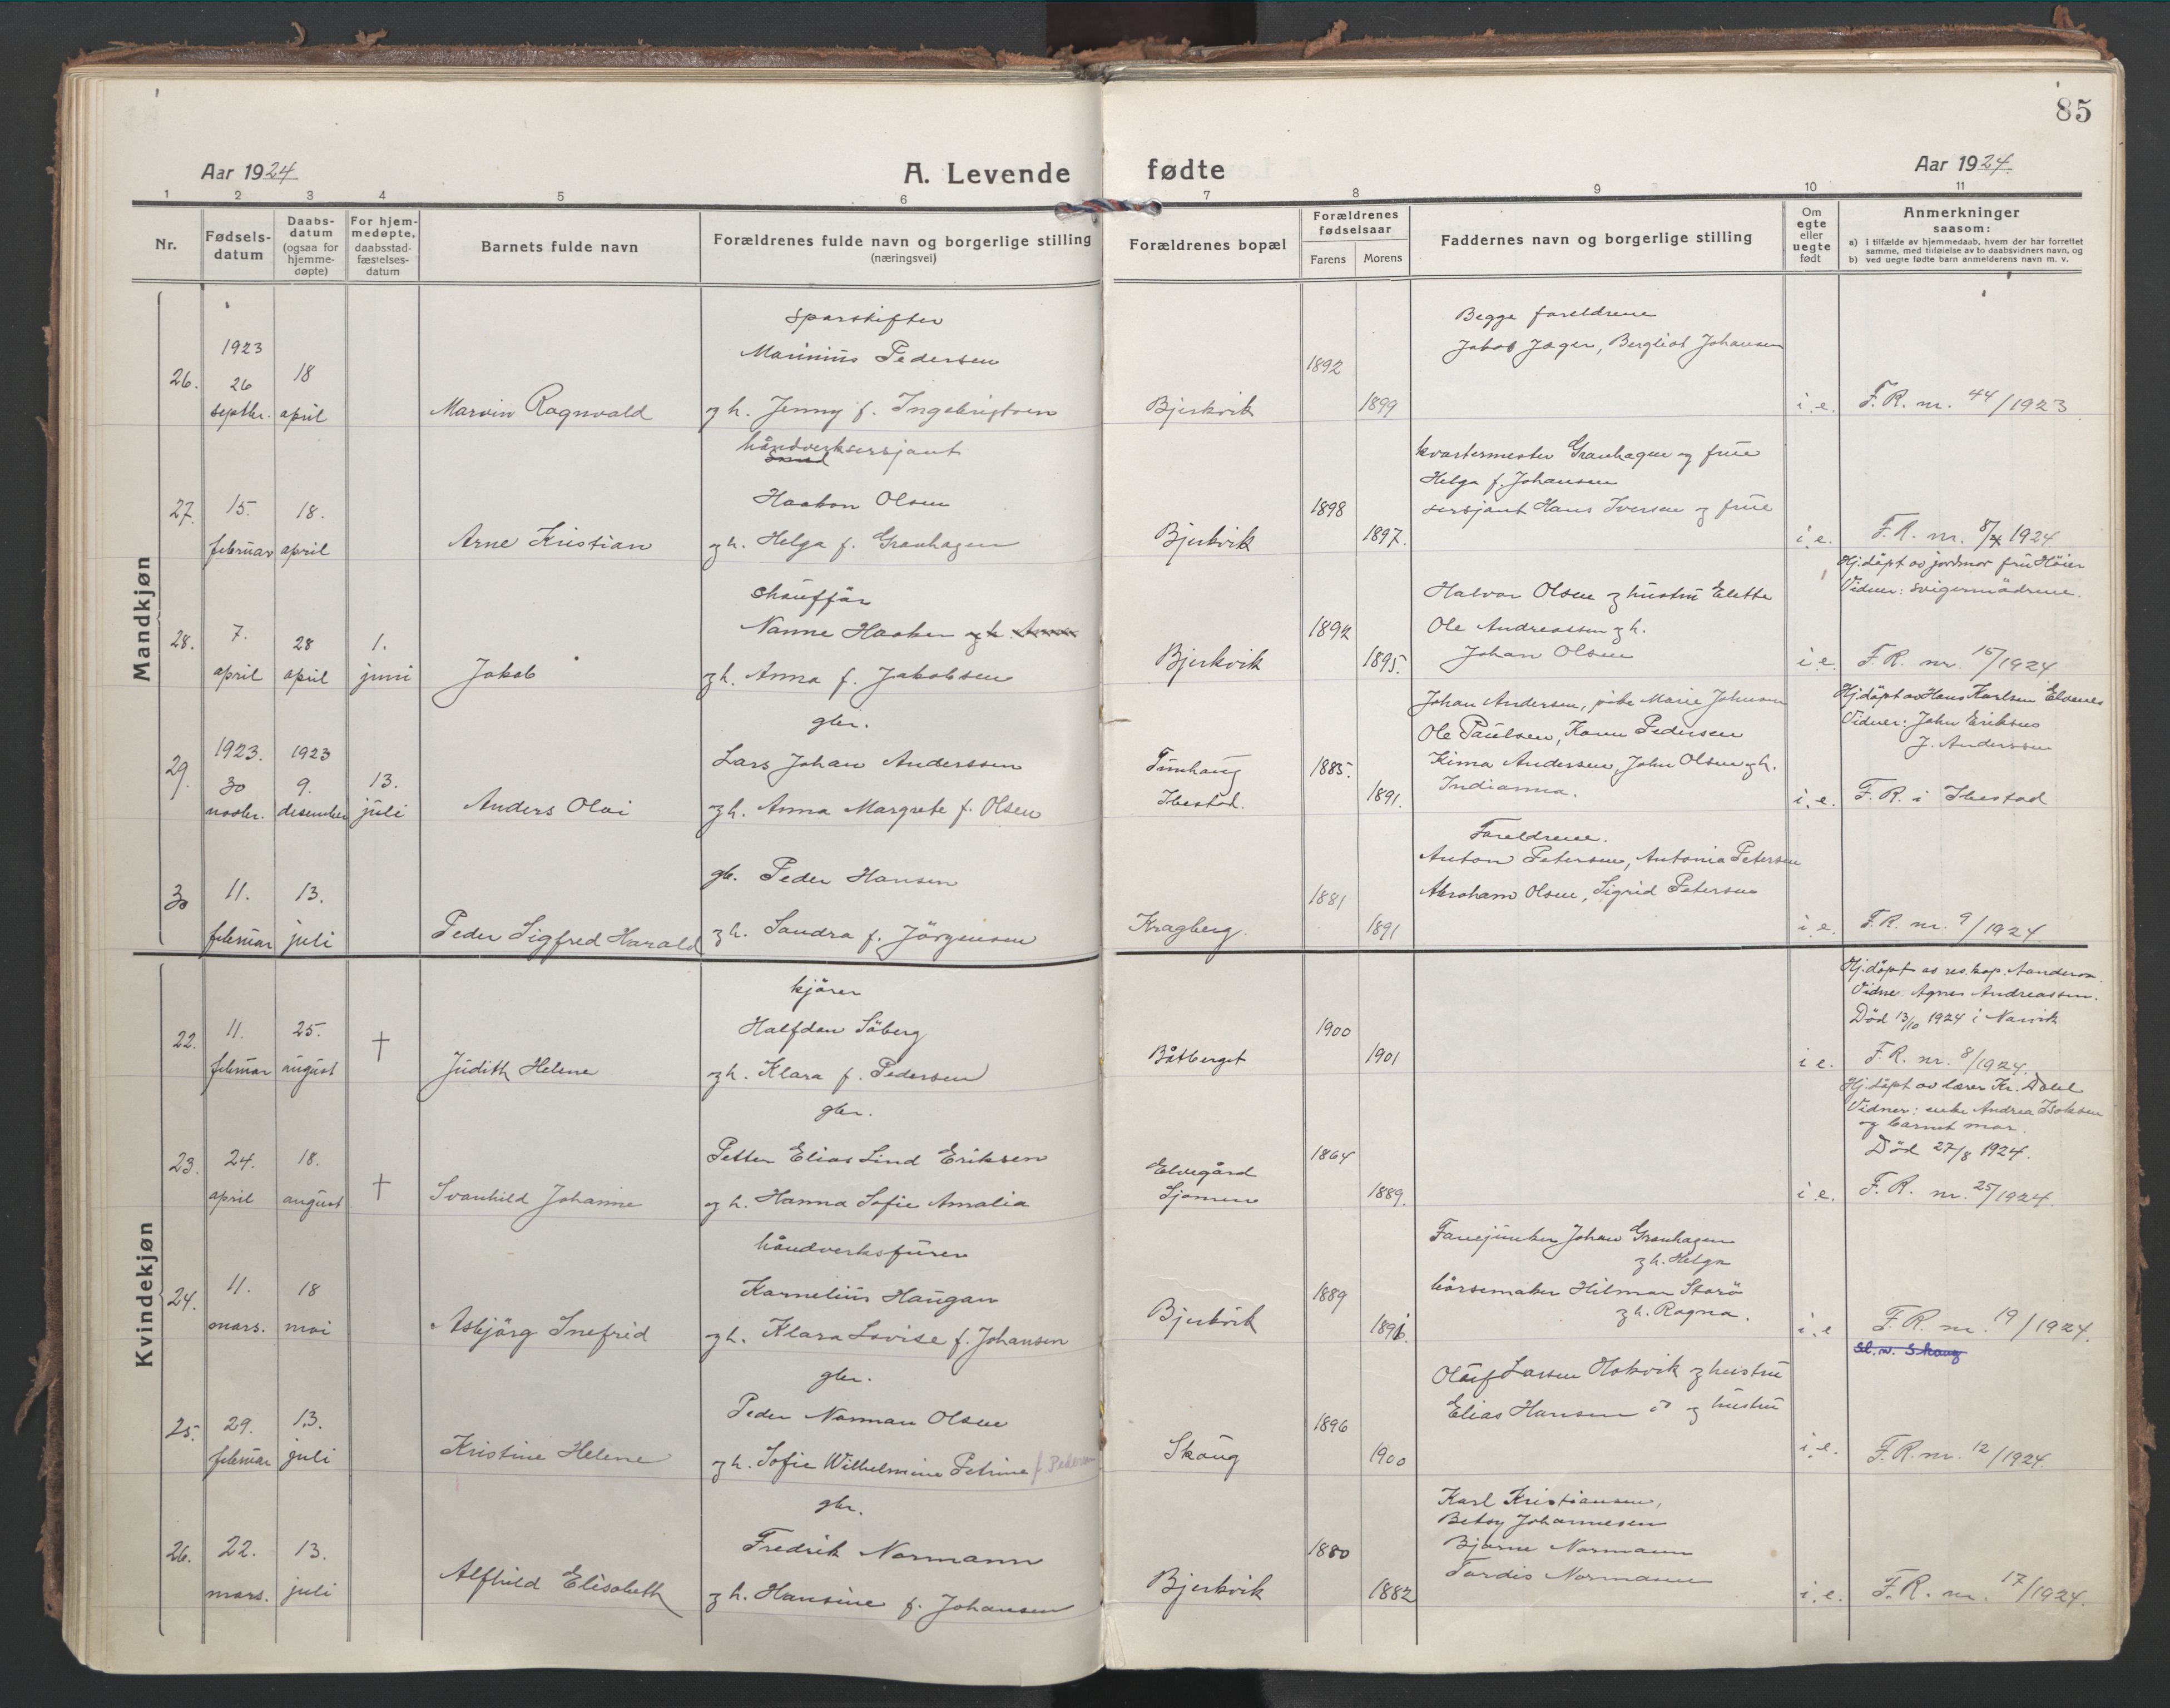 85
Aar 1924
A. Levende fødte
Aar 1924.
1 2 3 4 5 6 7 8 9 10 11
Nr.
Fødsels-
datum
Daabs-
datum
(ogsaa for
hjemme-
døpte)
For hjem-
medøpte,
daabsstad-
fæstelses-
datum
Barnets fulde navn
Forældrenes fulde navn og borgerlige stilling
(næringsvei)
Forældrenes bopæl
Forældrenes
fødselsaar
Farens Morens
Faddernes navn og borgerlige stilling
Om
egte
eller
uegte
født
Anmerkninger
saasom:
a) I tilfælde av hjemmedaab, hvem der har forrettet
samme, med tilføielse av to daabsvidners navn, og
b) ved uegte fødte barn anmelderens navn m. v.
Mandkjøn
26.
1923
26
septbr.
18
april
Marvin Ragnvald
Sporskifter
Marinius Pedersen
og h. Jenny f. Ingebrigtsen
Bjerkvik
1892
1899
Begge foreldrene
Jakob Jæger, Bergliot Johansen
i. e.
F. R. nr. 44/1923
27.
15.
februar
18.
april
Arne Kristian
håndverksersjant
Smed
Haakon Olsen
og h. Helga f. Granhagen
Bjerkvik
1898
1897.
kvartermester Granhagen og frue
Helga f. Johansen
sersjant Hans Iversen og frue
i. e.
F. R. nr. 8/1924
28.
7.
april
28
april
1.
juni
Jakob
Chauffør
Nanne Haaker og h.
og h. Anna f. Jakobsen
Bjerkvik
1892
1895.
Halvor Olsen og hustru Elette
Ole Andreassen og h.
Johan Olsen
i. e.
Hj.døpt av jordmor fru Høier
Vidner: svigermødrene.
F. R. nr. 15/1924
29.
1923.
30
novbr.
1923
9.
desember
13.
juli
Anders Olai
gbr.
Lars Johan Anderssen
og h. Anna Margrete f. Olsen
Ibestad.
1885.
1891.
Johan Andersen, pike Marie Johnsen
Ole Paulsen, Karen Pedersen
Kima Andersen, John Olsen og h.
Indianna.
i. e.
Hj.døpt av Hans Karlsen Elvenes
Vidner: John Eriksen
J. Anderssen
F. R. i Ibestad
30
11.
februar
13.
juli
Peder Sigfred Harald
gb. Peder Hansen
og h. Sandra f. Jørgensen
Kragberg.
1881
1891
Foreldrene.
Anton Petersen, Antonia Petersen
Abraham Olsen, Sigrid Petersen
i. e.
F. R. nr. 9/1924.
Kvindekjøn
22.
11.
februar
25.
august
†
Judith Helene
kjører
Halfdan Söberg
og h. Klara f. Pedersen
Båtberget
1900
1901
i e.
Hj.døpt av res. kap.
Vidne Agnes Andreassen.
Död 13/10 1924 i Narvik
F. R. nr. 8/1924.
23.
24.
april
18.
august
†
Svanhild Johanne
gbr.
Petter Elias Lind Eriksen
og h. Hanna Sofie Amalia
Elvegård
Sjomen
1864
1889.
i e.
Hj.døpt av lærer Kr. Dahl
Vidner: enke Andrea Isaksen
og barnet mor.
Död 27/8 1924.
F. R. nr. 25/1924.
24.
11.
mars.
18
mai
Asbjørg Snefrid
håndverksfurer
Kornelius Haugan
og h. Klara Lovise f. Johansen
Bjerkvik
1889
Fanejunker Johan Granhagen
og h. Helga
børsemaker Hilmar Storö
og h. Ragna.
i. e
F. R. nr. 19/1924.
25.
29.
februar
13.
juli
Kristine Helene
gbr.
Peder Norman Olsen
og h. Sofie Wilhelmine Petrine f. Pedersen
Skoug
1896
1900
Oluf Larsen Olakvik og hustru
Elias Hansen do og hustru
i. e.
F. R. nr. 12/1924.
26.
22.
mars.
13.
juli
Alfhild Elisabeth
gbr.
Fredrik Normann
og h. Hansine f. Johansen
Bjerkvik
1880
1882
Karl Kristiansen,
Betsy Johannesen
Bjarne Normann
Tordis Normann
i. e.
F. R. nr. 17/1924.